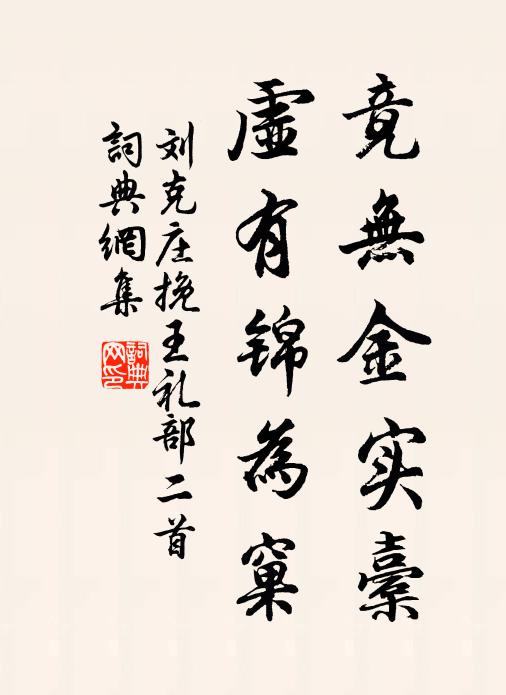 竟無金实橐
虛有錦為窠
刘克庄挽王礼部二首
詞典網集
詞典
网印